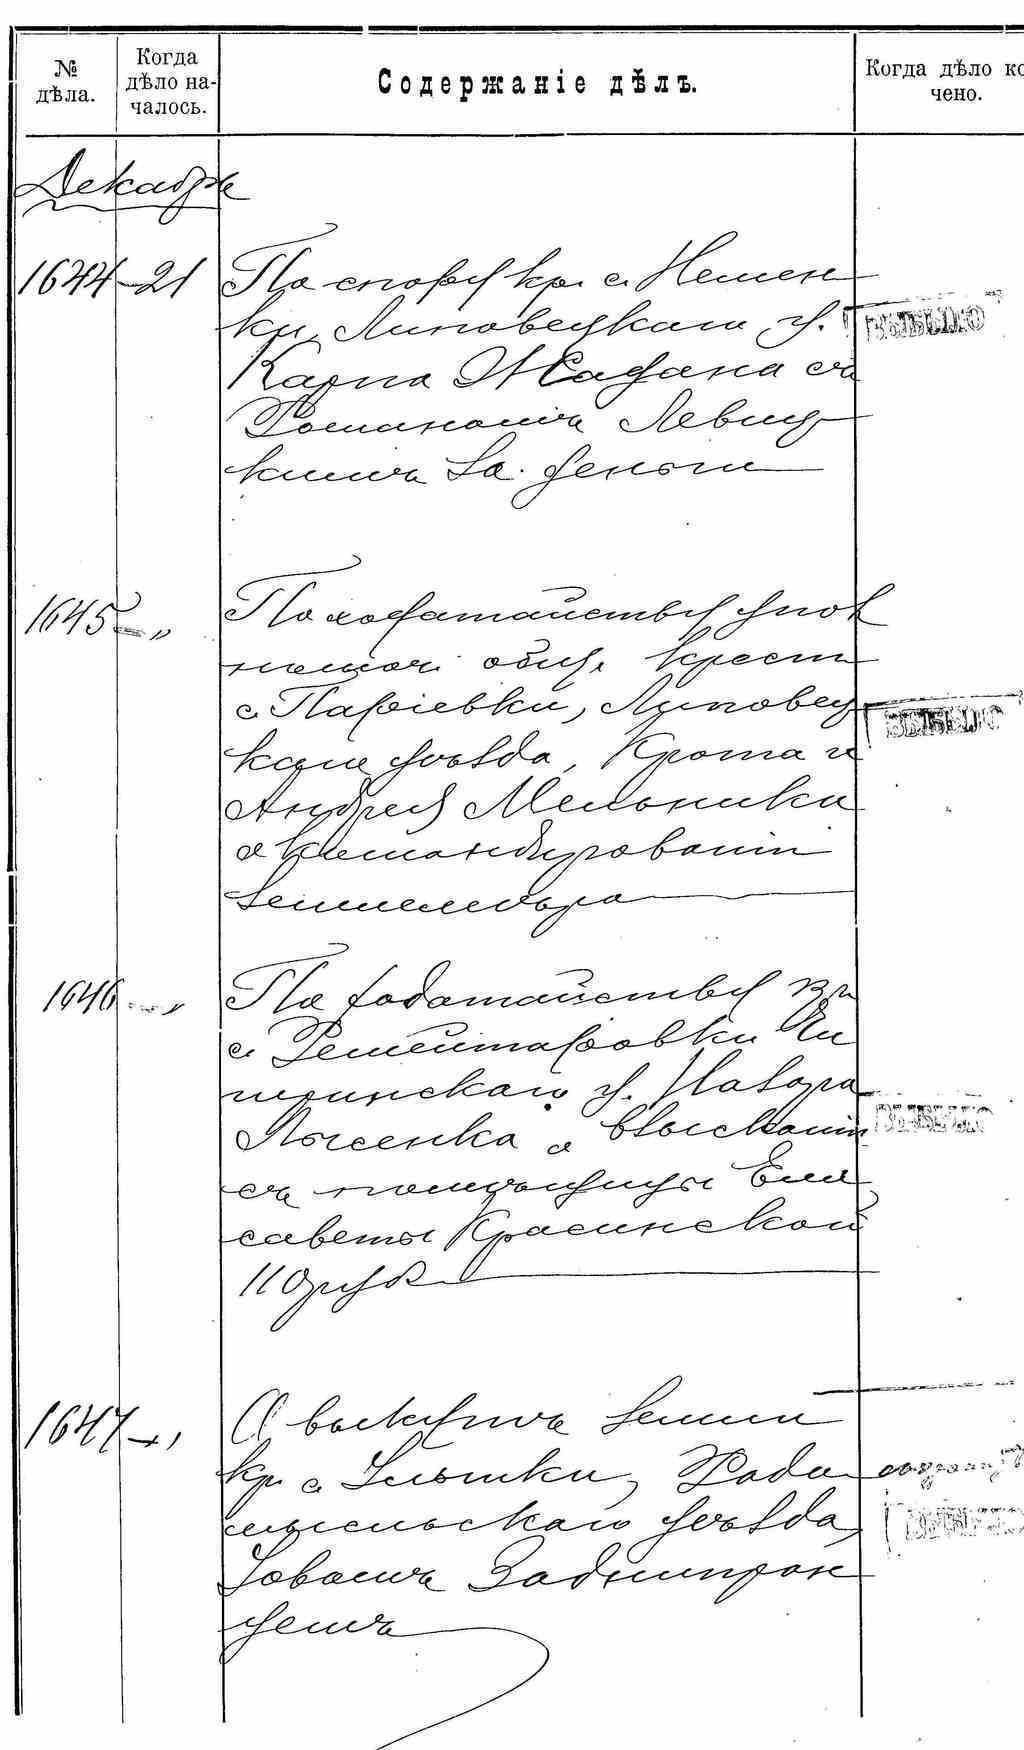 № дѣла.
Когда дѣло на-
чалось.
Содержаніе дѣлъ.
Когда дѣло ко
чено.
Декабрь
1644 - 21 По спору кр. с. Немен
ки, Липовецкаго у.
Карпа Жадана съ
Романомъ Левиц
кимъ за деньги
ВЫБЫЛО
1645 - „ По ходатайству упол
номоч. общ. крест.
с. Паріевки, Липовец
каго уѣзда, Крота и
Андрея Мельника
о командированіи
землемѣра
ВЫБЫЛО
1646 - „ По ходатайству кр.
с. Рементаровки Чи
гиринскаго у. Назара
Лысенка о взысканіи
съ помѣщицы Ели
саветы Красинской
110 руб
ВЫБЫЛО
1647 - „ О выкупѣ земли
кр. с. Ильинки, Радо
мысльскаго уѣзда,
Іовомъ Заднипрян
цемъ